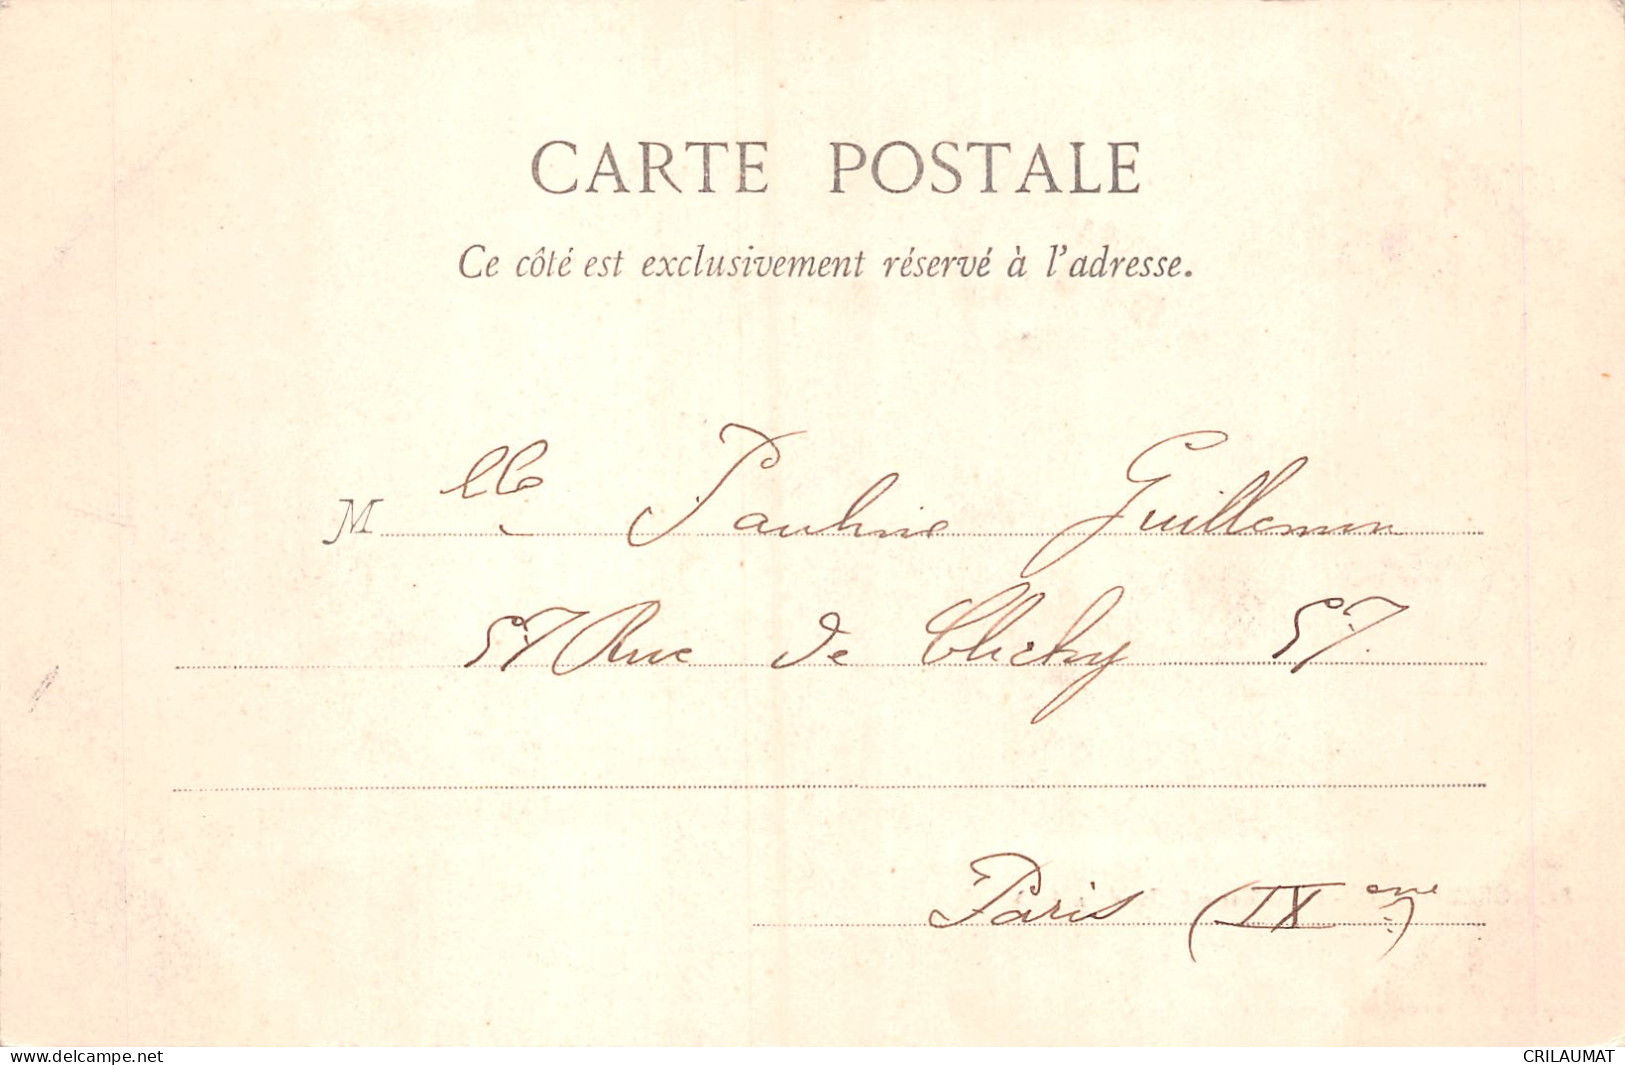 CARTE POSTALE
Ce côté est exclusivement réservé à l'adresse.
Mlle Pauline Guillemin
57 Rue de Clichy 57.
Paris (IXeme)
www.delcampe.net
CRILAUMAT